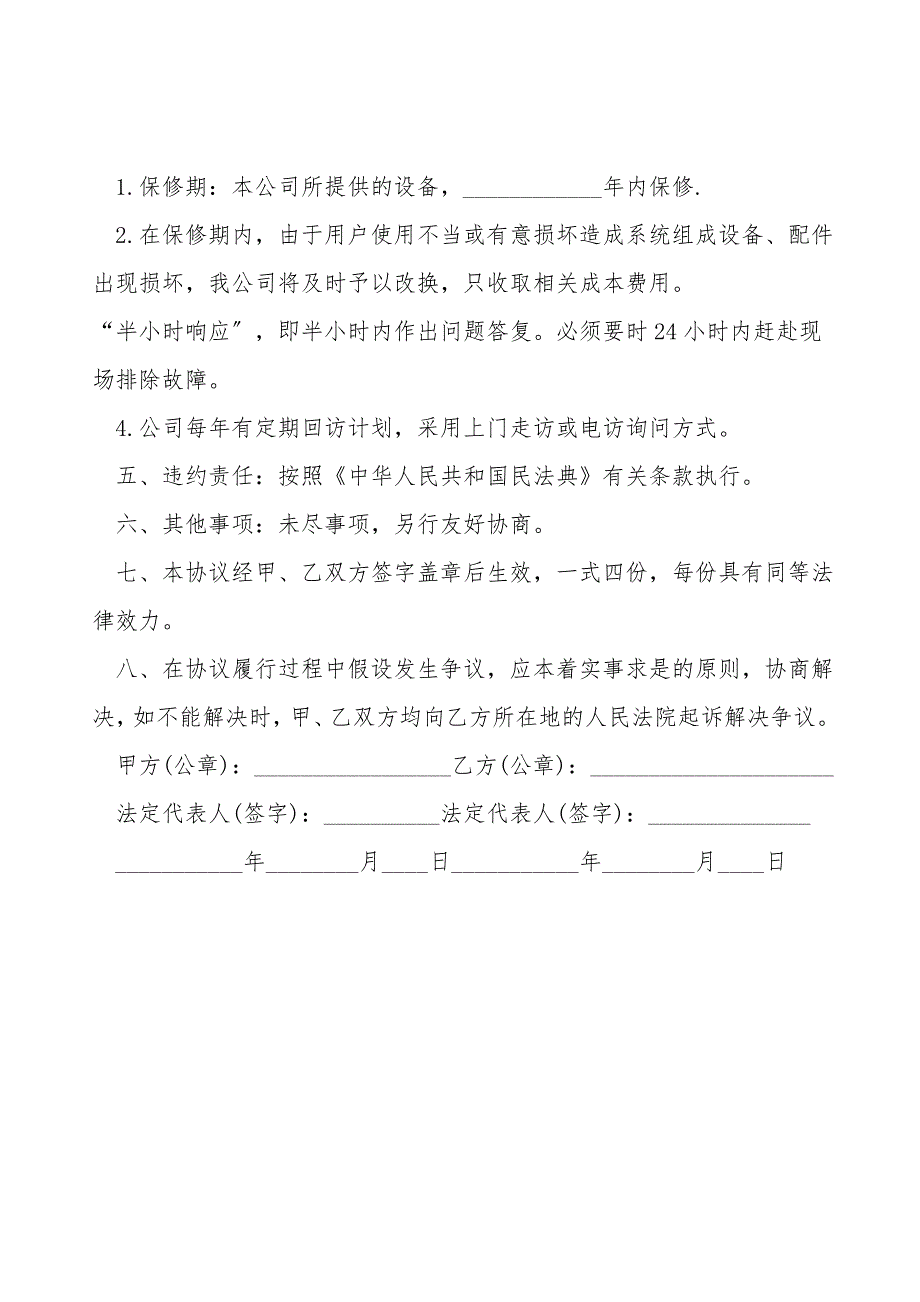 1.保修期：本公司所提供的设备，____________年内保修.
2.在保修期内，由于用户使用不当或有意损坏造成系统组成设备、配件
出现损坏，我公司将及时予以改换，只收取相关成本费用。
“半小时响应〞，即半小时内作出问题答复。必须要时 24 小时内赶赴现
场排除故障。
4.公司每年有定期回访计划，采用上门走访或电访询问方式。
五、违约责任：按照《中华人民共和国民法典》有关条款执行。
六、其他事项：未尽事项，另行友好协商。
七、本协议经甲、乙双方签字盖章后生效，一式四份，每份具有同等法
律效力。
八、在协议履行过程中假设发生争议，应本着实事求是的原则，协商解
决，如不能解决时，甲、乙双方均向乙方所在地的人民法院起诉解决争议。
甲方(公章)：_________________乙方(公章)：_____________________
法定代表人(签字)：__________法定代表人(签字)：______________
___________年________月____日___________年________月____日